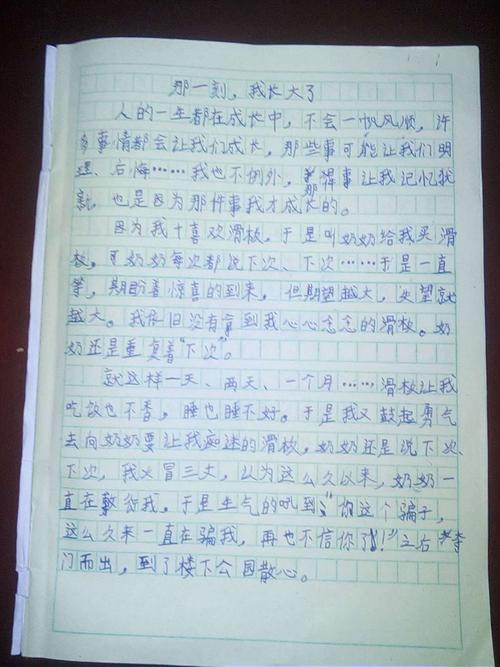 那一刻，我长大了
人的一生都在成长中，不会一帆风顺，许
多事情都会让我们成长，那些事可能让我们明
理、后悔……我也不例外，那件事让我记忆犹
新，也是因为那件事我才成长的。
因为我十喜欢滑板。于是叫奶奶给我买滑
板。可奶奶每次都说下次、下次……于是一直
等，期盼着惊喜的到来，但期望越大，失望就
越大。我依旧没有拿到我心心念念的滑板。奶
奶还是重复着“下次”。
就这样一天、两天、一个月……滑板让我
吃饭也不香，睡也睡不好。于是我又鼓起勇气
去向奶奶要让我痴迷的滑板，奶奶还是说下次、
下次，我火冒三丈，认为这么久以来，奶奶一
直在敷衍我。于是生气的吼到：“你这个骗子，
这么久来一直在骗我，再也不信你了！”之后夺
门而出，到了楼下公园散心。